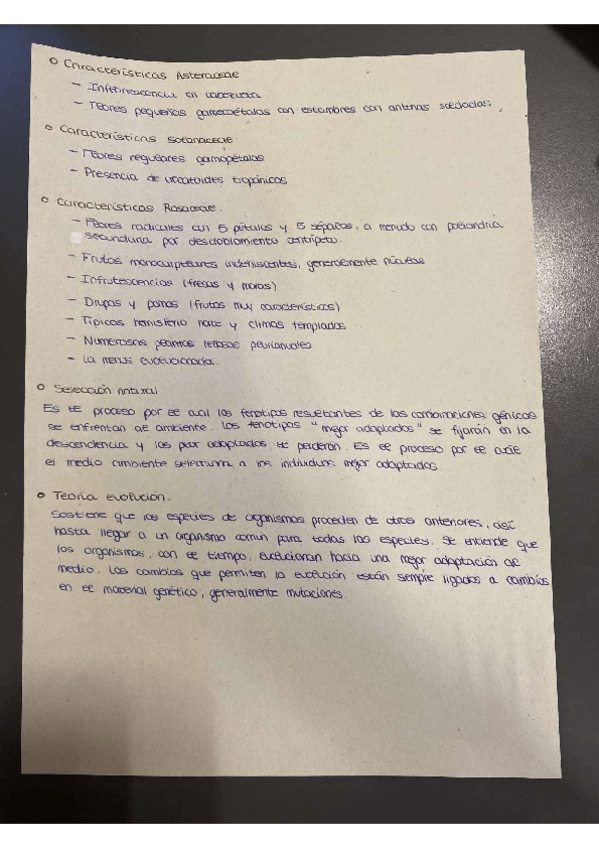 Características Asteraceae
- Inflorescencia en cabezuela
- Flores pequeñas gamopétalas con estambres con antenas soldadas.
Características Solanaceae
- Flores regulares gamopétalas
- Presencia de alcaloides tropánicos
Características Rosaceae.
- Flores radiales con 5 pétalos y 5 sépalos, a menudo con poliandria
secundaria por desdoblamiento centrípeto.
- Frutos monocarpelares indehiscentes, generalmente núculas
- Infrutescencias (fresas y moras)
- Drupas y pomos (frutos muy característicos)
- Típicas hemisferio norte y climas templados
- Numerosas plantas leñosas plurianuales
- La menos evolucionada.
Selección natural
Es el proceso por el cual los fenotipos resultantes de las combinaciones génicas
se enfrentan al ambiente. Los fenotipos "mejor adaptados" se fijarán en la
descendencia y los peor adaptados se perderán. Es el proceso por el cual
el medio ambiente selecciona a los individuos mejor adaptados.
Teoría evolución.
Sostiene que las especies de organismos proceden de otros anteriores, así
hasta llegar a un organismo común para todas las especies. Se entiende que
los organismos, con el tiempo, evolucionan hacia una mejor adaptación al
medio. Los cambios que permiten la evolución están siempre ligados a cambios
en el material genético, generalmente mutaciones.